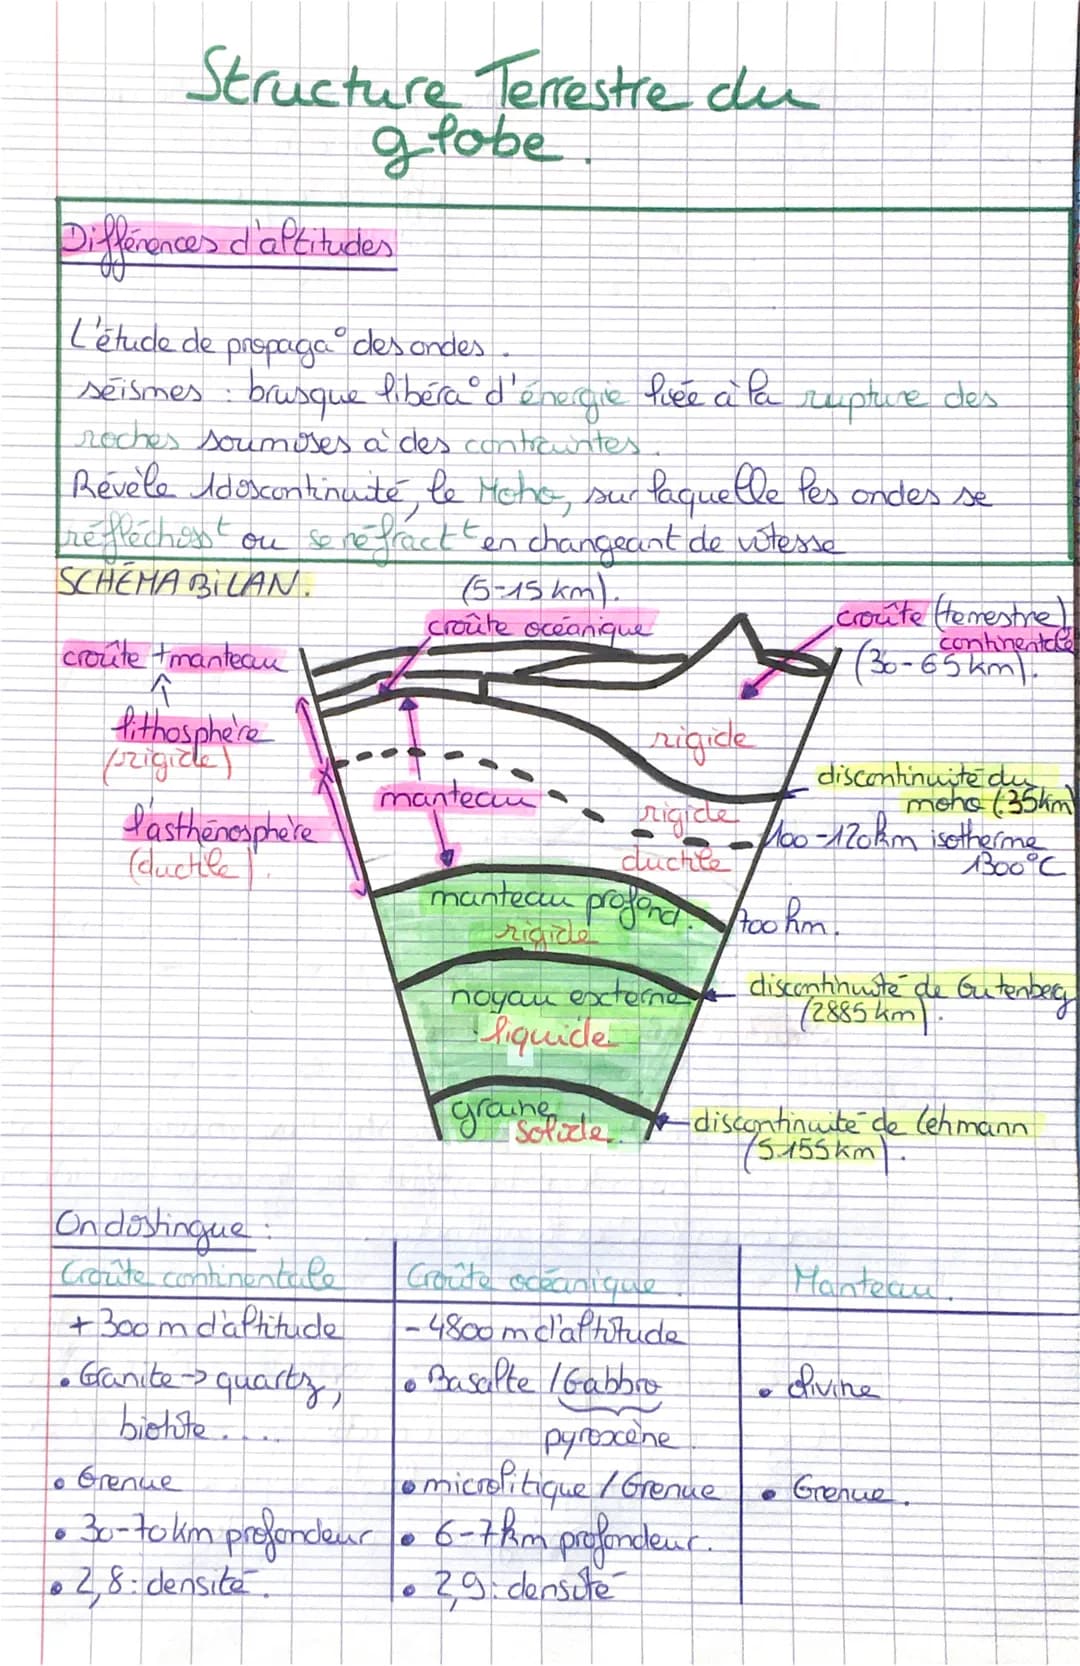 Structure Terrestre du
globe.
Différences d'altitudes
L'étude de propaga° des ondes.
séismes : brusque libéra° d'énergie liée à la rupture des
roches soumises à des contraintes.
Révèle 1 discontinuité, le Moho, sur laquelle les ondes se
réfléchisst ou se réfractt en changeant de vitesse
SCHÉMA BILAN.
(5-15 km).
croûte océanique
croûte (terrestre)
continentale
(30-65 km).
croûte + manteau
lithosphère
(rigide)
rigide
discontinuité du
moho (35km)
manteau
l'asthénosphère
(ductile).
rigide
100-120km isotherme
1300°C
ductile
manteau profond.
rigide
700 km.
noyau externe
liquide
discontinuité de Gutenberg
(2885 km).
graine
solide.
discontinuité de Lehmann
(5155 km).
On distingue :
Croûte continentale
Croûte océanique.
Manteau.
+ 300 m d'altitude
- 4800 m d'altitude
• Granite → quartz,
biotite ....
• Basalte / Gabbro
pyroxène.
• Olivine
• Grenue
• microlitique / Grenue
• Grenue.
• 30-70 km profondeur
• 6-7km profondeur.
• 2,8 : densité.
• 2,9 : densité